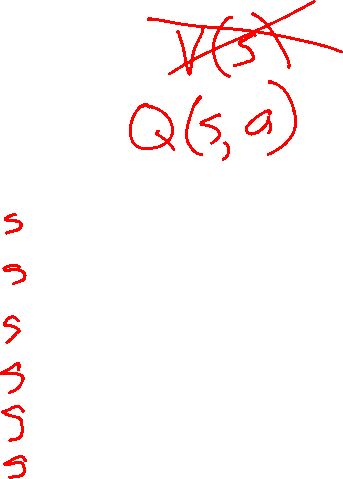 V(s)
Q(s, a)
s
s
s
s
s
s